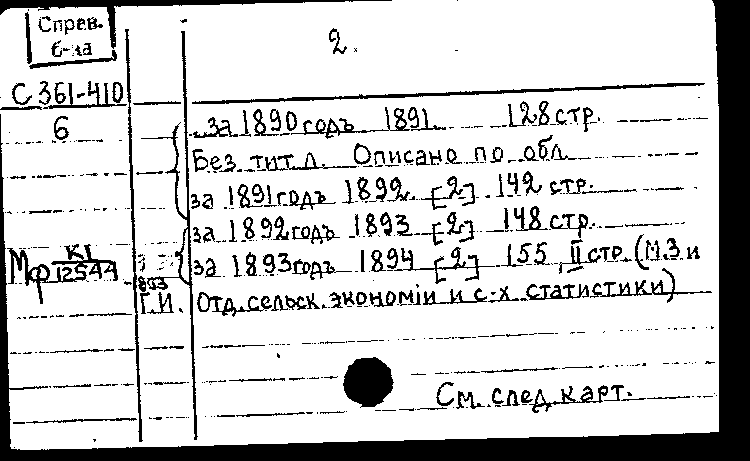 Справ.
б-ка
2.
С 361-410
6
...за 1890 годъ 1891. 128 стр.
Без тит. л. Описано по обл.
за 1891 годъ 1892. [2] 142 стр.
за 1892 годъ 1893 [2] 148 стр.
Мф К1/12544
за 1893 годъ 1894 [2] 155, II стр. (М.З и
893
Г.И. Отд. сельск. экономіи и с.-х. статистики)
См. след. карт.